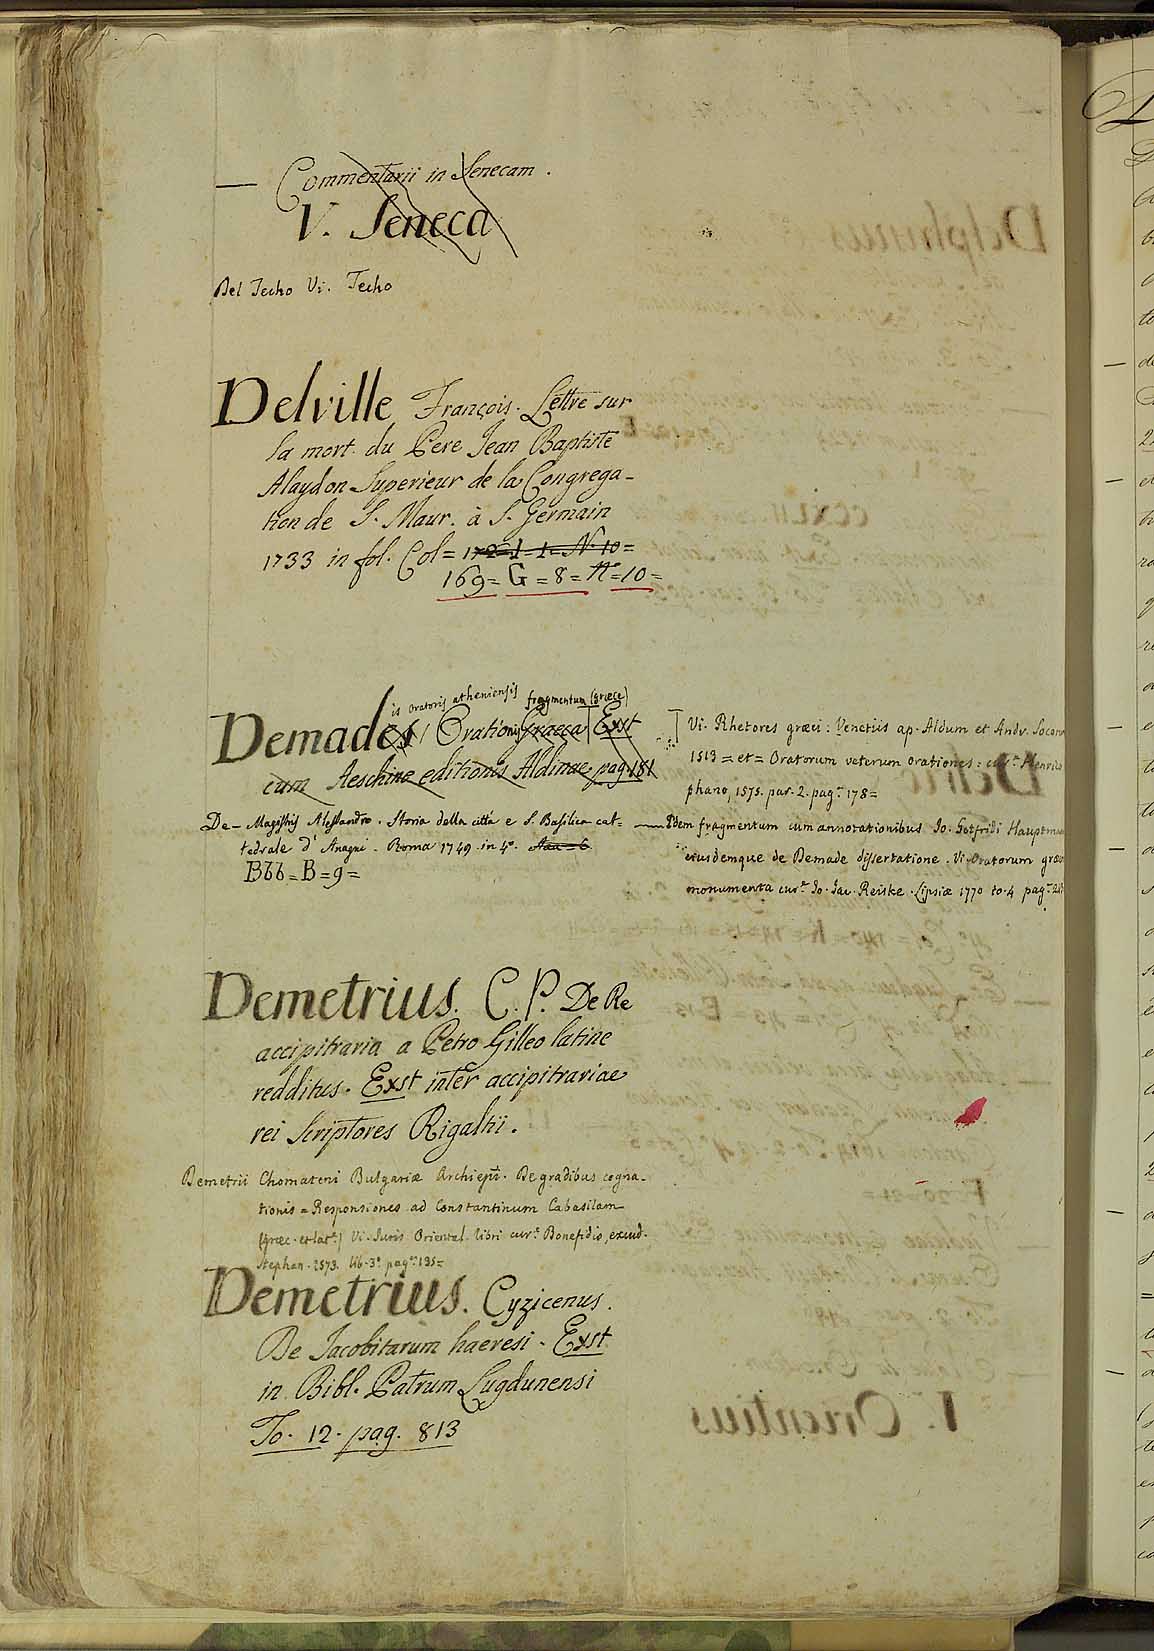 — Commentarii in Senecam.
V. Seneca
Del Techo Vi. Techo
Delville François. Lettre sur
la mort du Pere Jean Baptiste
Alaydon Superieur de la Congrega-
tion de S. Maur. à S. Germain
1733 in fol. Col = 172=1=1= N. 10=
169= G = 8 = N.=10=
is Oratoris atheniensis fragmentum (græce)
Demades Oratio Graeca Exst
cum Aeschine editionis Aldinae pag. 181
De- Magistris Alessandro. Storia della città e S. Basilica cat=
tedrale d' Anagni. Roma 1749. in 4°. Aaa=6
Bbb = B = 9 =
Vi. Rhetores græci: Venetiis ap. Aldum et Andr. Socerum
1513 = et = Oratorum veterum orationes: cur.e Henrico
phano, 1575. par. 2. pag.e 178=
— Idem fragmentum cum annotationibus Jo. Gotfridi Hauptman
eiusdemque de Demade dissertatione. Vi. Oratorum græc
monumenta cur.e Jo. Jac. Reiske. Lipsiæ 1770 to. 4 pag.e
Demetrius. C. P. De Re
accipitraria a Petro Gilleo latine
redditus. Exst inter accipitrariae
rei Scriptores Rigaltii.
Demetrii Chomateni Bulgariæ Archiepi. De gradibus cogna-
tionis = Responsiones ad Constantinum Cabasilam
(græc. et lat.e) Vi. Juris Oriental. libri cur.e Bonefidio, excud.
Stephan. 1573. lib. 3° pag.e 135=
Demetrius. Cyzicenus.
De Jacobitarum haeresi. Exst
in Bibl. Patrum Lugdunensi
To. 12. pag. 813